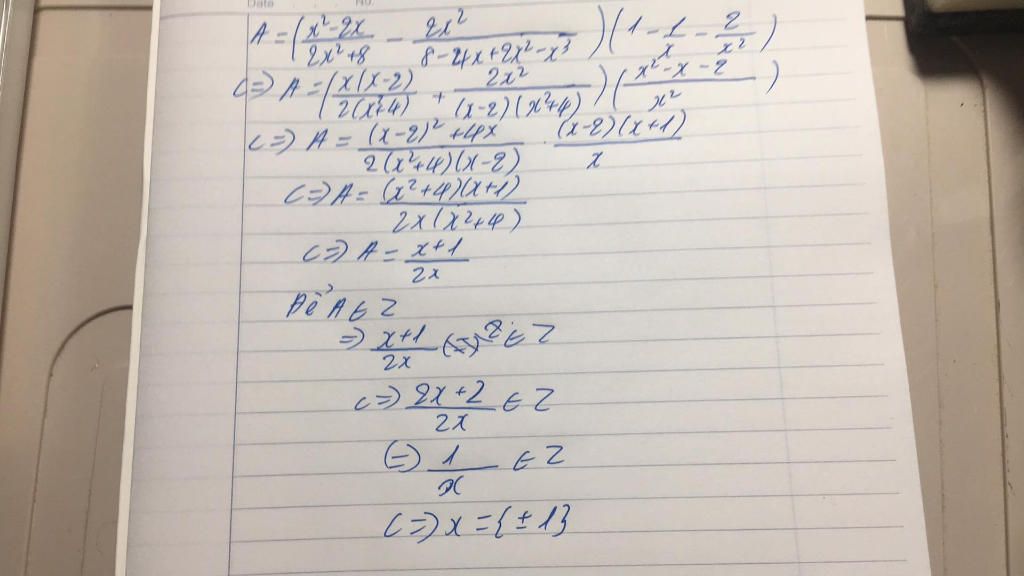 Date No.
A = (x²-2x / 2x²+8 - 2x² / 8-4x+2x²-x³)(1 - 1/x - 2/x²)
<=> A = (x(x-2) / 2(x²+4) + 2x² / (x-2)(x²+4))(x²-x-2 / x²)
<=> A = (x-2)²+4x / 2(x²+4)(x-2) . (x-2)(x+1) / x
<=> A = (x²+4)(x+1) / 2x(x²+4)
<=> A = x+1 / 2x
Để A ∈ Z
=> x+1 / 2x ∈ Z
<=> 2x+2 / 2x ∈ Z
<=> 1 / x ∈ Z
<=> x = {±1}